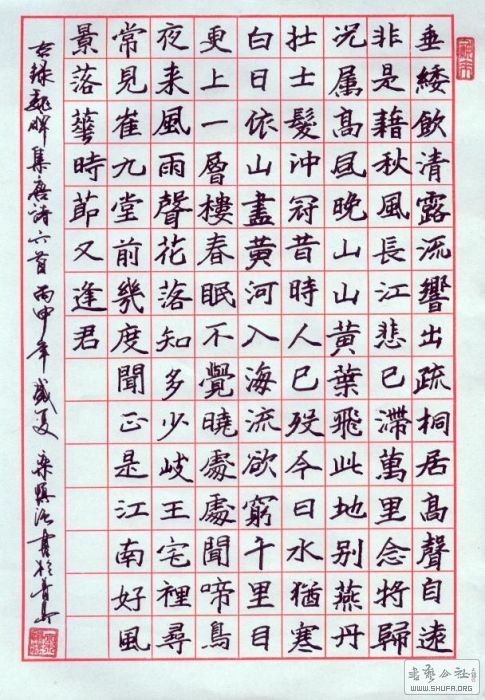 垂緌飲清露流響出疏桐居高聲自遠
非是藉秋風長江悲已滯萬里念將歸
況属高風晚山山黄葉飛此地别燕丹
壮士髮沖冠昔時人已殁今日水猶寒
白日依山盡黄河入海流欲窮千里目
更上一層樓春眠不覺曉處處聞啼鳥
夜来風雨聲花落知多少岐王宅裡尋
常見崔九堂前幾度聞正是江南好風
景落華時節又逢君
録魏碑集唐詩六首丙申年盛夏書於青島
书艺公社
WWW.SHUFA.ORG